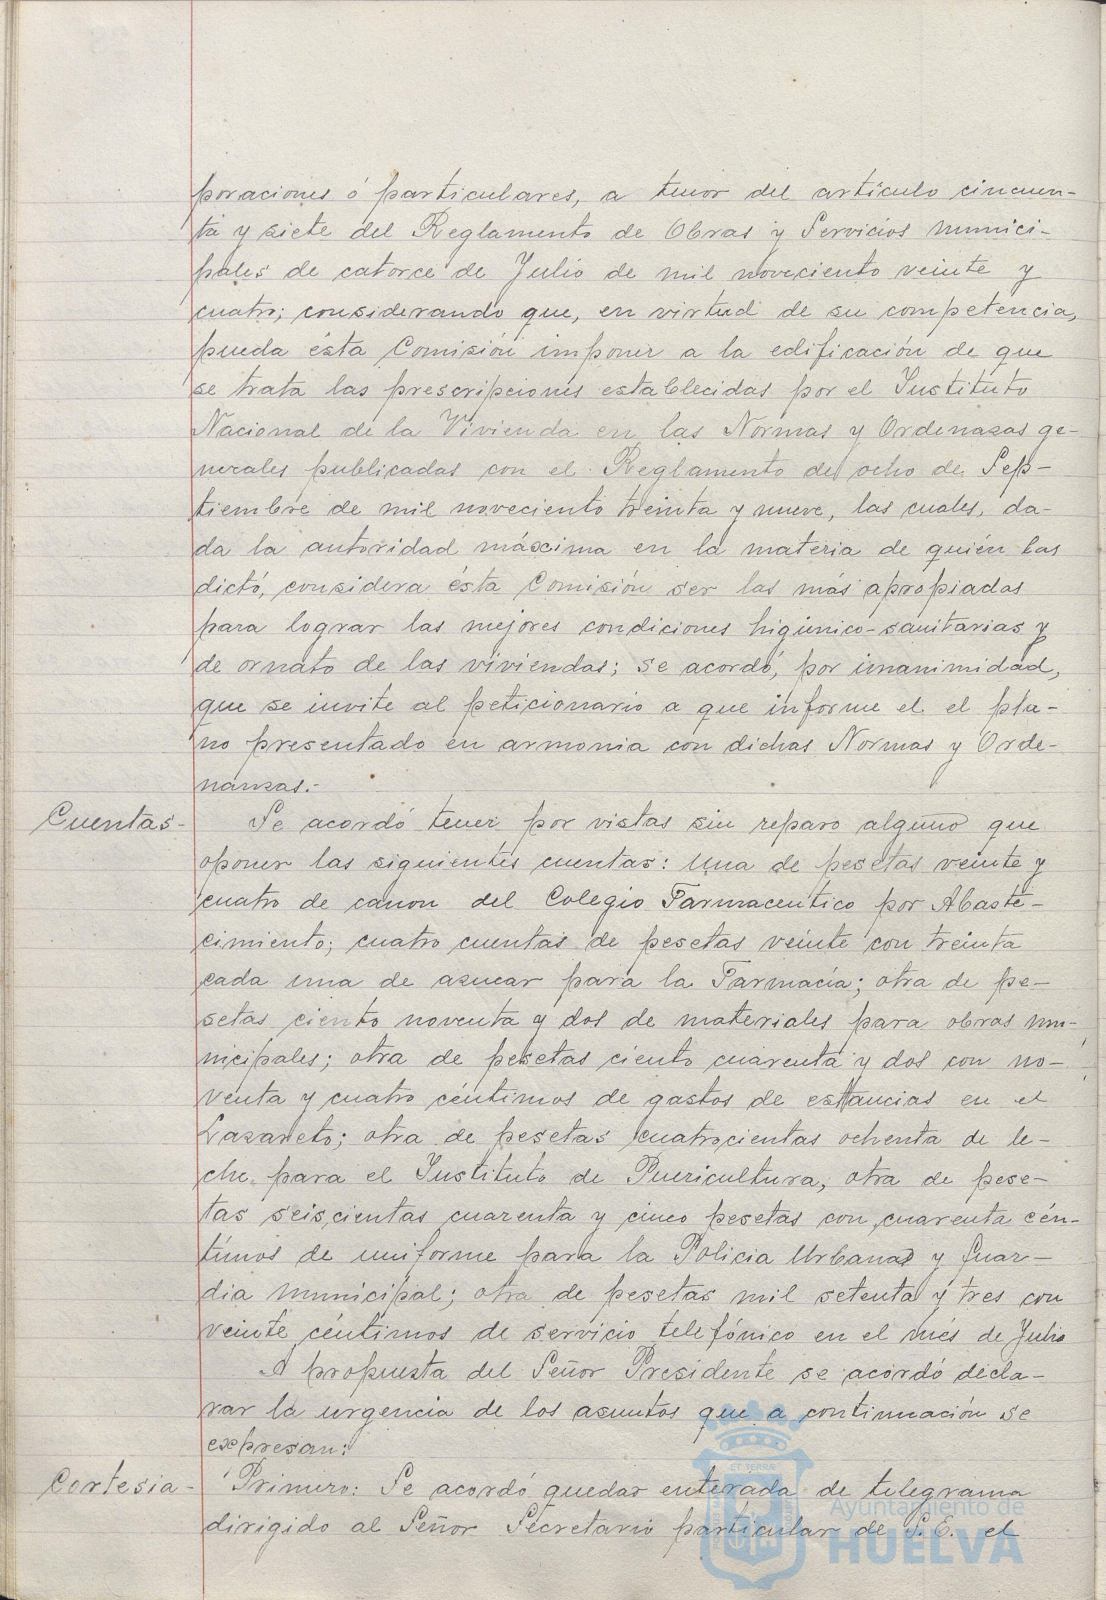 poraciones ó particulares, a tenor del artículo cincuen-
ta y siete del Reglamento de Obras y Servicios munici-
pales de catorce de Julio de mil noveciento veinte y
cuatro; considerando que, en virtud de su competencia,
pueda ésta Comisión imponer a la edificación de que
se trata las prescripciones establecidas por el Instituto
Nacional de la Vivienda en las Normas y Ordenazas ge-
nerales publicadas con el Reglamento de ocho de Sep-
tiembre de mil noveciento treinta y nueve, las cuales, da-
da la autoridad máxima en la materia de quién las
dictó, considera ésta Comisión ser las más apropiadas
para lograr las mejores condiciones higiénico-sanitarias y
de ornato de las viviendas; se acordó, por unanimidad,
que se invite al peticionario a que informe el el pla-
no presentado en armonia con dichas Normas y Orde-
nanzas.-
Cuentas- Se acordó tener por vistas sin reparo alguno que
oponer las siguientes cuentas: una de pesetas veinte y
cuatro de canon del Colegio Farmaceutico por Abaste-
cimiento; cuatro cuentas de pesetas veinte con treinta
cada una de azucar para la Farmacía; otra de pe-
setas ciento noventa y dos de materiales para obras mu-
nicipales; otra de pesetas ciento cuarenta y dos con no-
venta y cuatro céntimos de gastos de estancias en el
Lazareto; otra de pesetas cuatrocientas ochenta de le-
che para el Instituto de Puericultura; otra de pese-
tas seiscientas cuarenta y cinco pesetas con cuarenta cén-
timos de uniforme para la Policia Urbana y Guar-
dia municipal; otra de pesetas mil setenta y tres con
veinte céntimos de servicio telefónico en el més de Julio
A propuesta del Señor Presidente se acordó decla-
rar la urgencia de los asuntos que a continuación se
expresan:
Cortesia- Primero: Se acordó quedar enterada de telegrama
dirigido al Señor Secretario particular de S.E. el
Ayuntamiento de
HUELVA